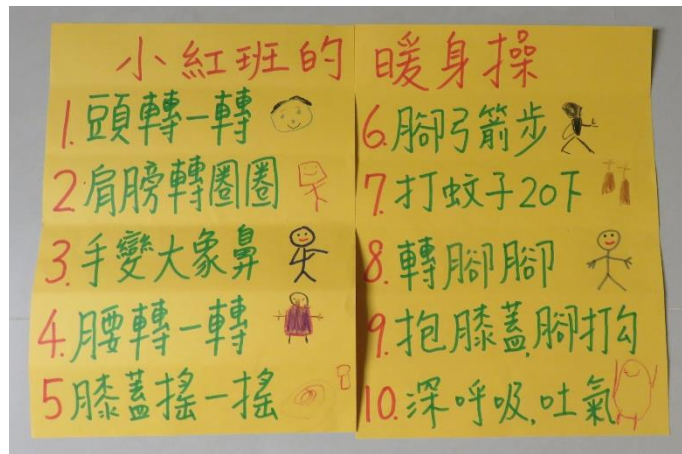 小紅班的 暖身操
1. 頭轉一轉
2 肩膀轉圈圈
3. 手變大象鼻
4. 腰轉一轉
5 膝蓋搖一搖
6. 腳弓箭步
7. 打蚊子20下
8. 轉腳腳
9. 抱膝蓋,腳打勾
10. 深呼吸,吐氣